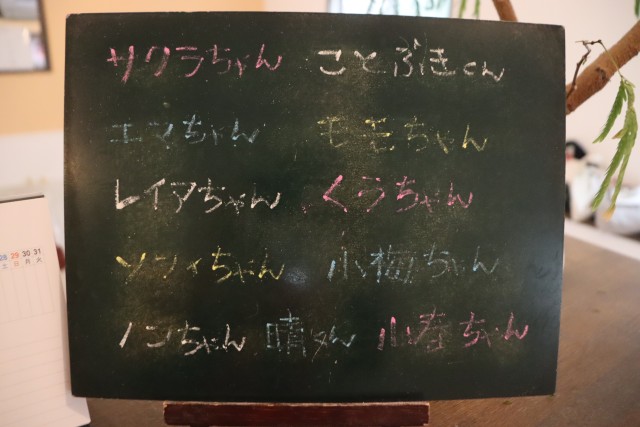 サクラちゃん ことぶきくん
エマちゃん モモちゃん
レイアちゃん くうちゃん
ソフィちゃん 小梅ちゃん
ノンちゃん 晴くん 小春ちゃん
28 29 30 31
土 日 月 火